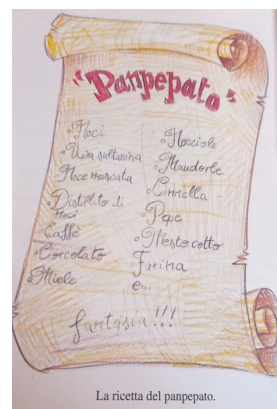 "Panpepato"
Noci
Uva sultanina
Noce moscata
Distillato di
Noci
Caffè
Cioccolato
Miele
Nocciole
Mandorle
Cannella
Pepe
Mosto cotto
Farina
e...
fantasia!!!
La ricetta del panpepato.